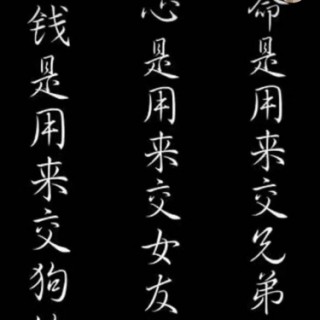 命是用来交兄弟
心是用来交女友
钱是用来交狗